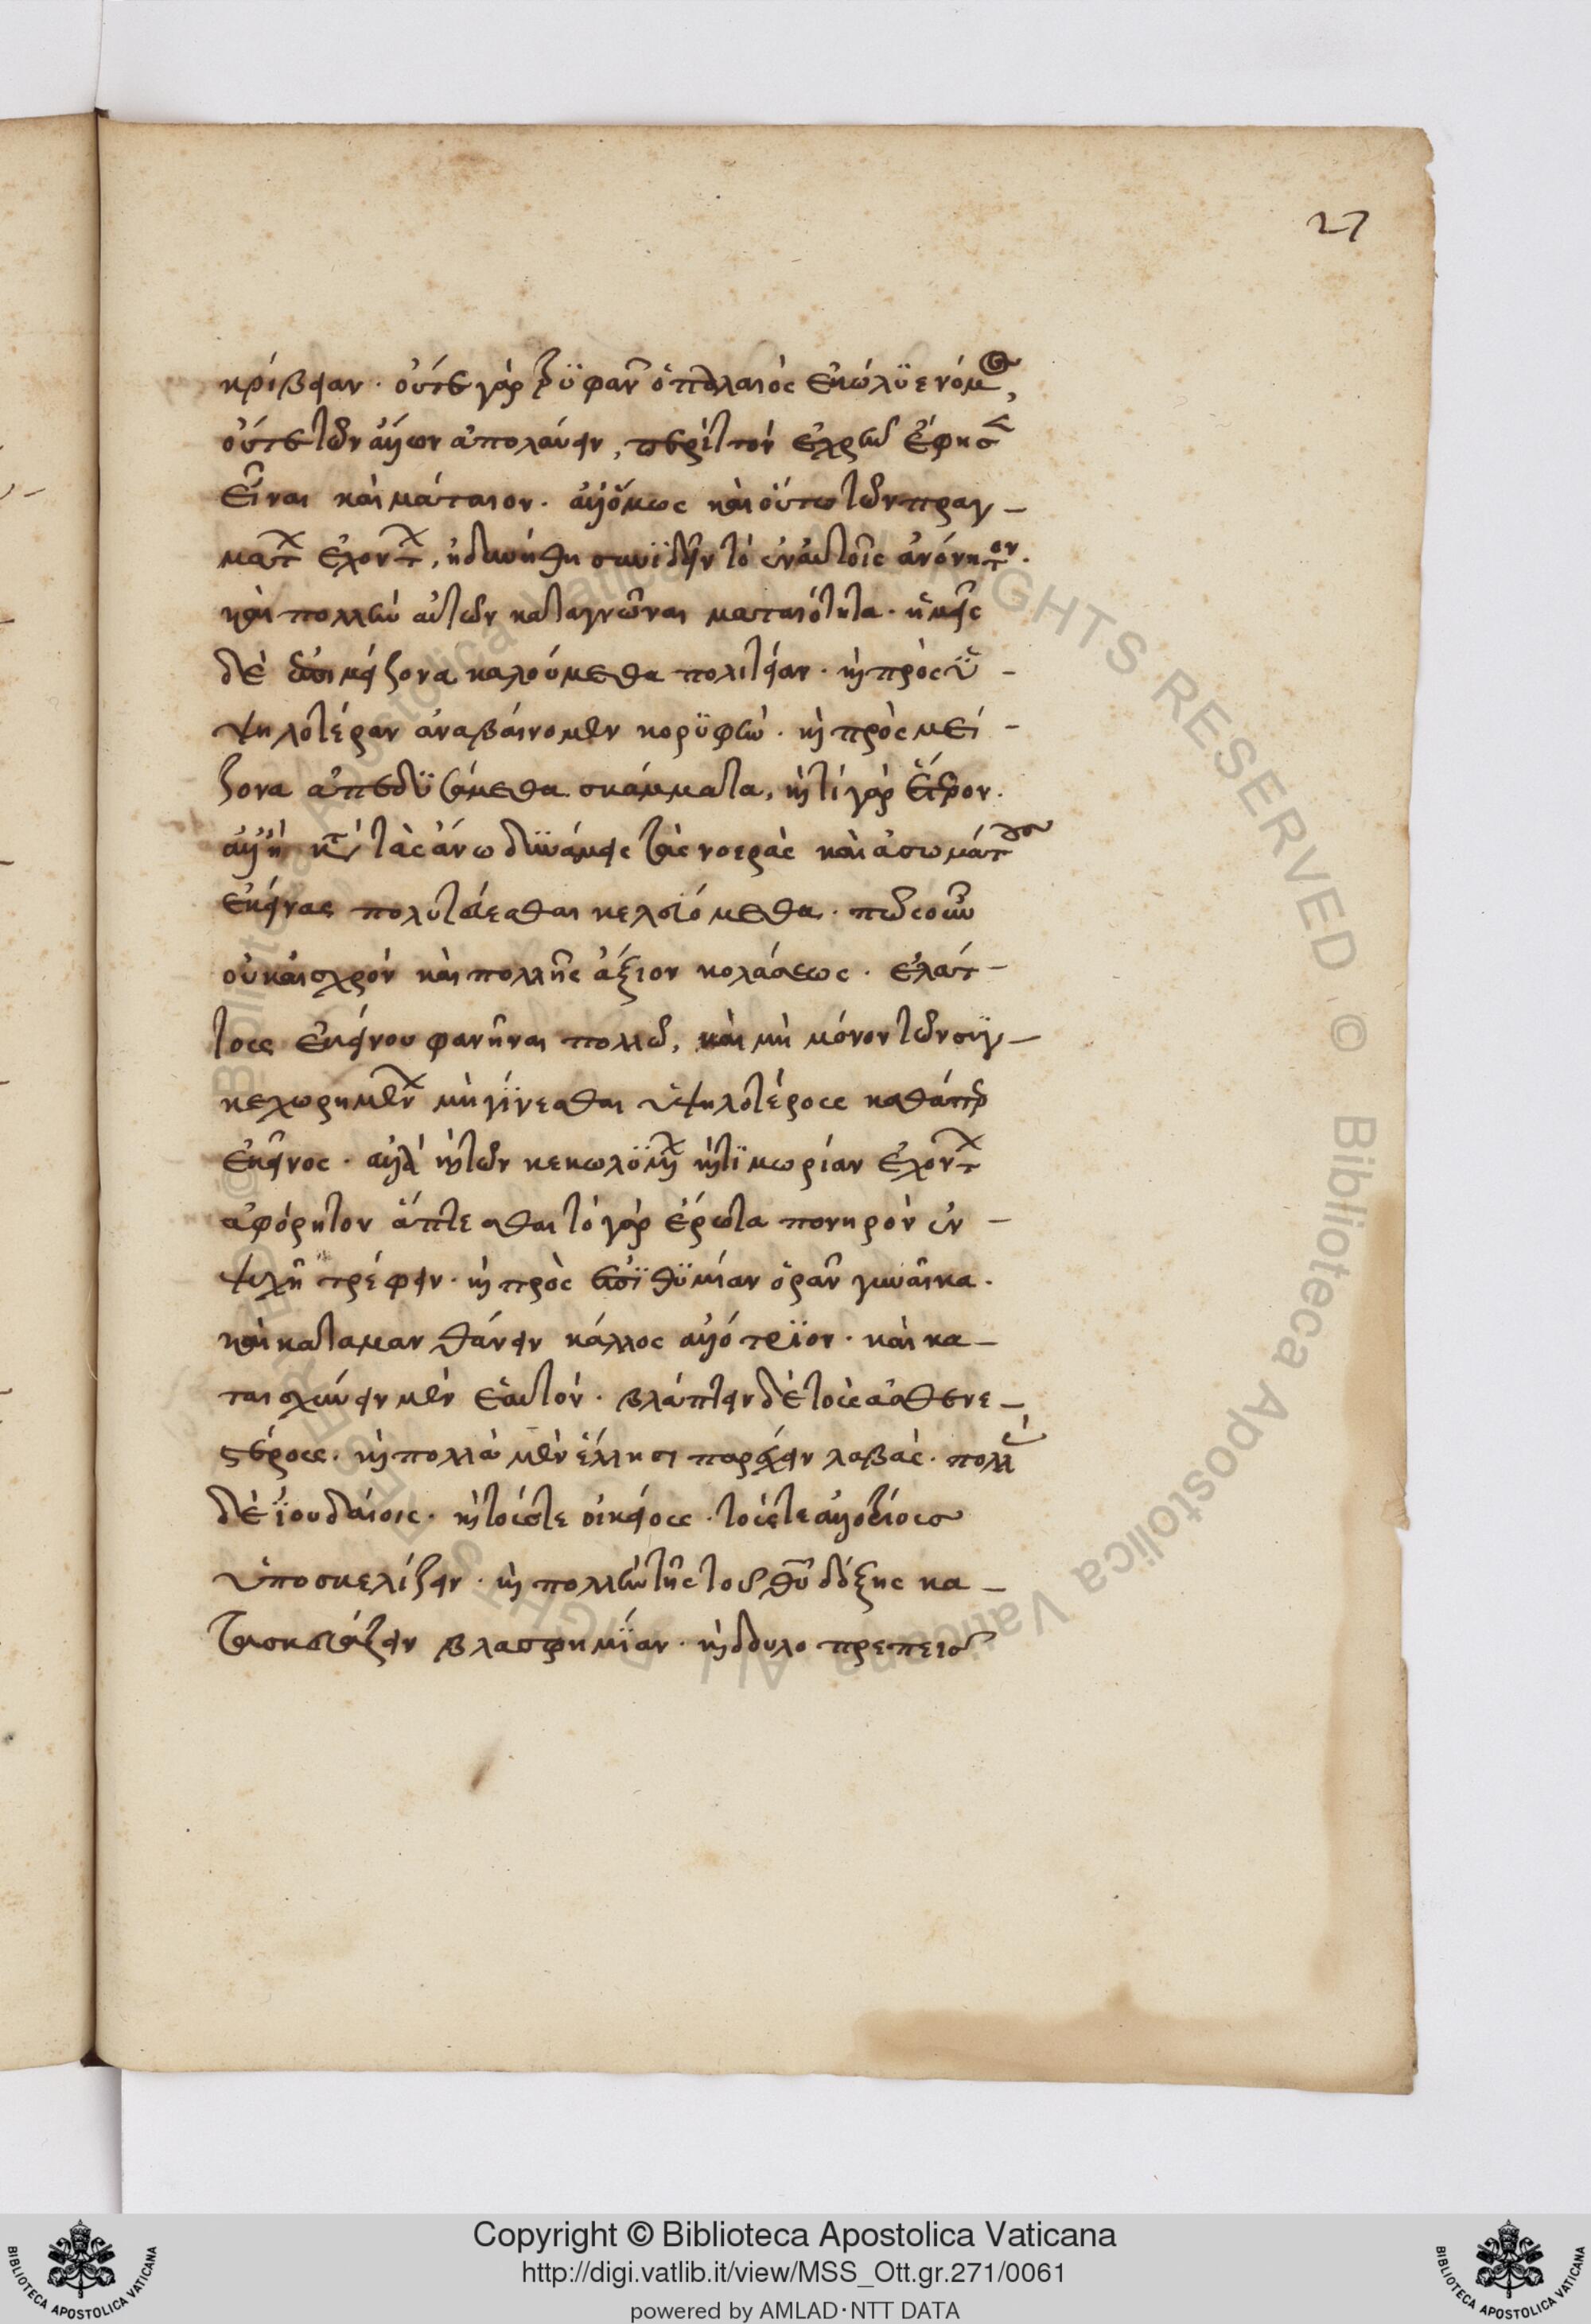 27
κρίβειαν. οὔτε γὰρ τρυφᾶν ὁ παλαιὸς ἐκώλυε νόμος,
οὔτε τῶν ἄλλων ἀπολαύειν, περιττὸν ἐχρῆν ἔφησ
εἶναι καὶ μάταιον. ἀλλ' ὅμως καὶ οὕτω τῶν πραγ-
μάτων ἐχόντων, ἠδυνήθη συνϊδεῖν τὸ ἐν αὐτοῖς ἀνόνητον.
καὶ πολλὴν αὐτῶν καταγνῶναι ματαιότητα. ἡμεῖς
δὲ ἐπὶ μείζονα καλούμεθα πολιτείαν. καὶ πρὸς ὑ-
ψηλοτέραν ἀναβαίνομεν κορϋφὴν. καὶ πρὸς μεί-
ζονα ἀπεδϋσάμεθα σκάμματα, καὶ τί γὰρ ἕτερον.
ἀλλ' ἢ κατὰ τὰς ἄνω δυνάμεις τὰς νοερὰς καὶ ἀσωμάτους
ἐκείνας πολιτεύεσθαι κελευόμεθα. πῶς οὖν
οὐκ αἰσχρὸν καὶ πολλῆς ἄξιον κολάσεως. ἐλάτ-
τους ἐκείνου φανῆναι πολλῶ, καὶ μὴ μόνον τῶν συγ-
κεχωρημένων μὴ γίνεσθαι ὑψηλοτέρους καθάπερ
ἐκεῖνος. ἀλλὰ καὶ τῶν κεκωλϋμένων καὶ τϊμωρίαν ἐχόντων
ἀφόρητον ἅπτεσθαι τὸ γὰρ ἔρωτα πονηρὸν ἐν-
ψυχῆ τρέφειν. καὶ πρὸς ἐπϊθϋμίαν ὁρᾶν γυναῖκα.
καὶ καταμανθάνειν κάλλος ἀλλότρϊον. καὶ κα-
ταισχύνειν μὲν ἑαυτόν. βλάπτειν δὲ τοὺς ἀσθενε-
στέρους. καὶ πολλὰ μὲν ἕλλησι παρέχειν λαβὰς. πολλὰς
δὲ ϊουδαίοις. καὶ τούς τε οἰκείους. τούς τε ἀλλοτρίους
ὑποσκελίζειν. καὶ πολλὴν τῆς τοῦ θῦ δόξης κα-
τασκευάζειν βλασφημϊαν. καὶ δουλοπρεπεῖς

Copyright © Biblioteca Apostolica Vaticana
http://digi.vatlib.it/view/MSS_Ott.gr.271/0061
powered by AMLAD·NTT DATA
BIBLIOTECA APOSTOLICA VATICANA
BIBLIOTECA APOSTOLICA VATICANA